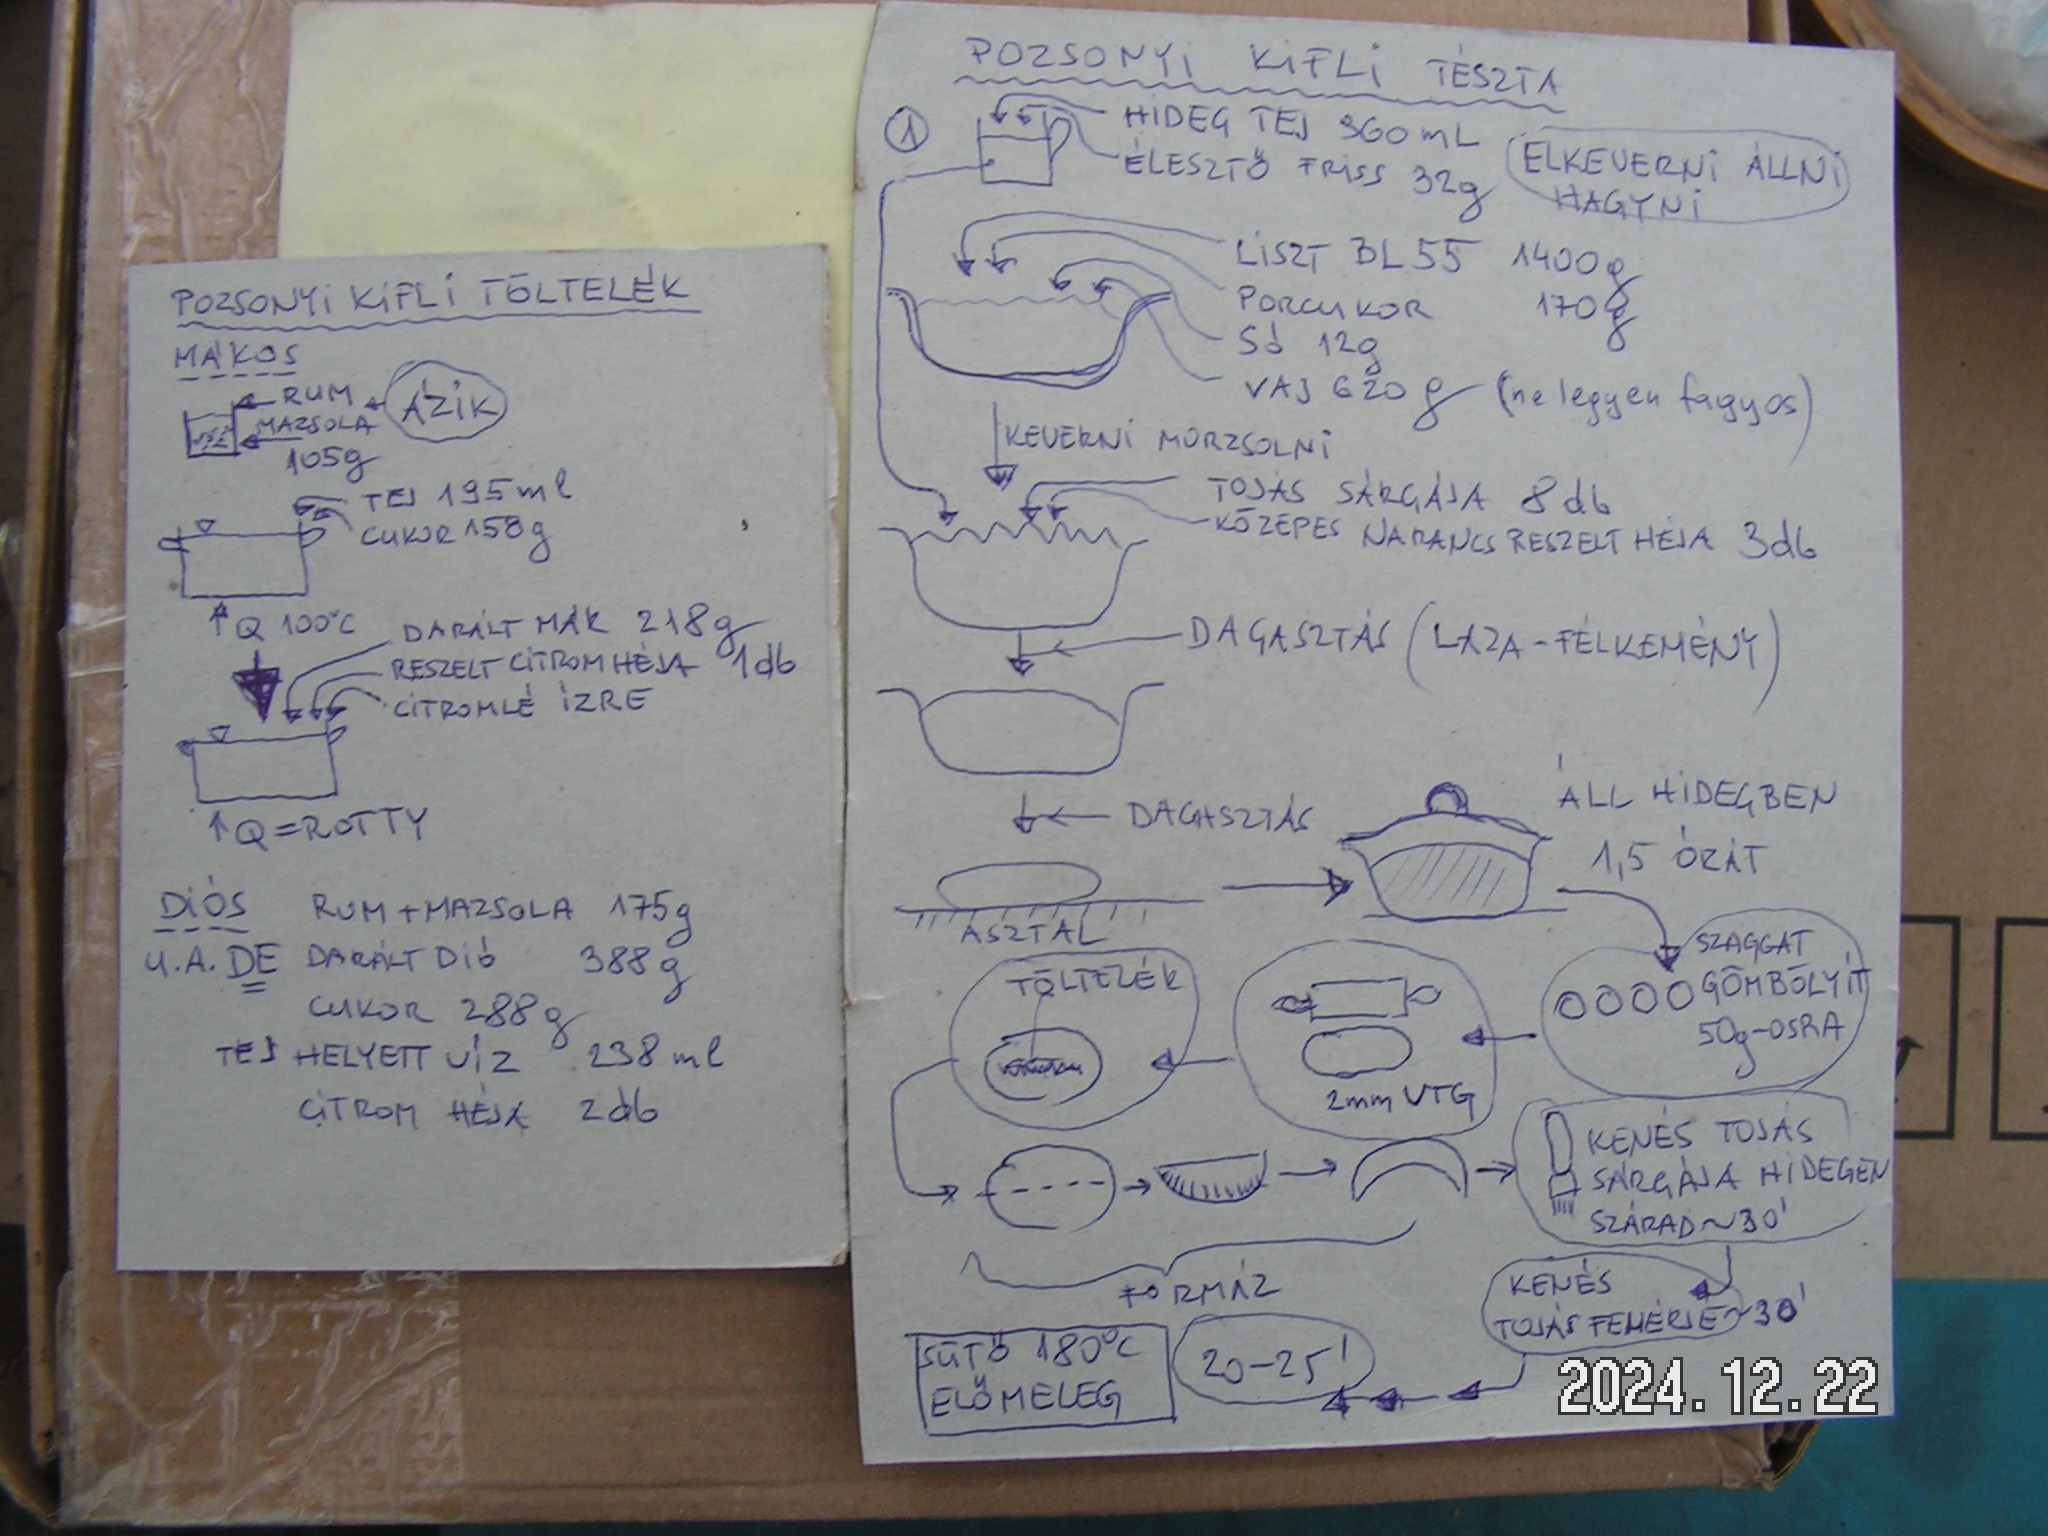 POZSONYI KIFLI TÖLTELÉK
MÁKOS
RUM
MAZSOLA
105g
ÁZIK
TEJ 195ml
CUKOR 158g
Q 100°C
DARÁLT MÁK 218g
RESZELT CITROM HÉJA 1db
CITROMLÉ ÍZRE
Q=ROTTY
DIÓS RUM+MAZSOLA 175g
U.A. DE DARÁLT DIÓ 388g
CUKOR 288g
TEJ HELYETT VÍZ 238ml
CITROM HÉJA 2db
POZSONYI KIFLI TÉSZTA
1
HIDEG TEJ 360mL
ÉLESZTŐ FRISS 32g
ELKEVERNI ÁLLNI
HAGYNI
LISZT BL55 1400g
PORCUKOR 170g
SÓ 12g
VAJ 620g (ne legyen fagyos)
KEVERNI MORZSOLNI
TOJÁS SÁRGÁJA 8db
KÖZEPES NARANCS RESZELT HÉJA 3db
DAGASZTÁS (LAZA-FÉLKEMÉNY)
DAGASZTÁS
ÁLL HIDEGBEN
1,5 ÓRÁT
ASZTAL
SZAGGAT
GÖMBÖLYÍT
50g-OSRA
2mm VTG
TÖLTELÉK
FORMÁZ
KENÉS TOJÁS
SÁRGÁJA HIDEGEN
SZÁRAD ~30'
KENÉS
TOJÁS FEHÉRJE ~30'
SÜTŐ 180°C
ELŐMELEG
20-25'
2024.12.22